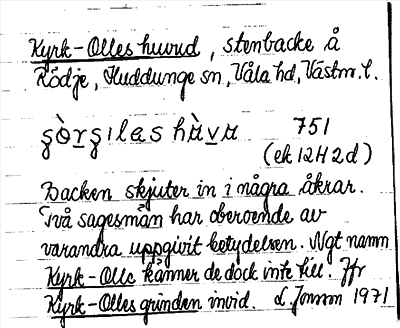 Kyrk-Olles huvud, stenbacke å
Rödje, Huddunge sn, Våla hd, Västm. l.
751
(ek 12H2d)
Backen skjuter in i några åkrar.
Två sagesmän har oberoende av
varandra uppgivit betydelsen. Ngt namn
Kyrk-Olle känner de dock inte till. Jfr
Kyrk-Olles grinden invid. L. Jonson 1971